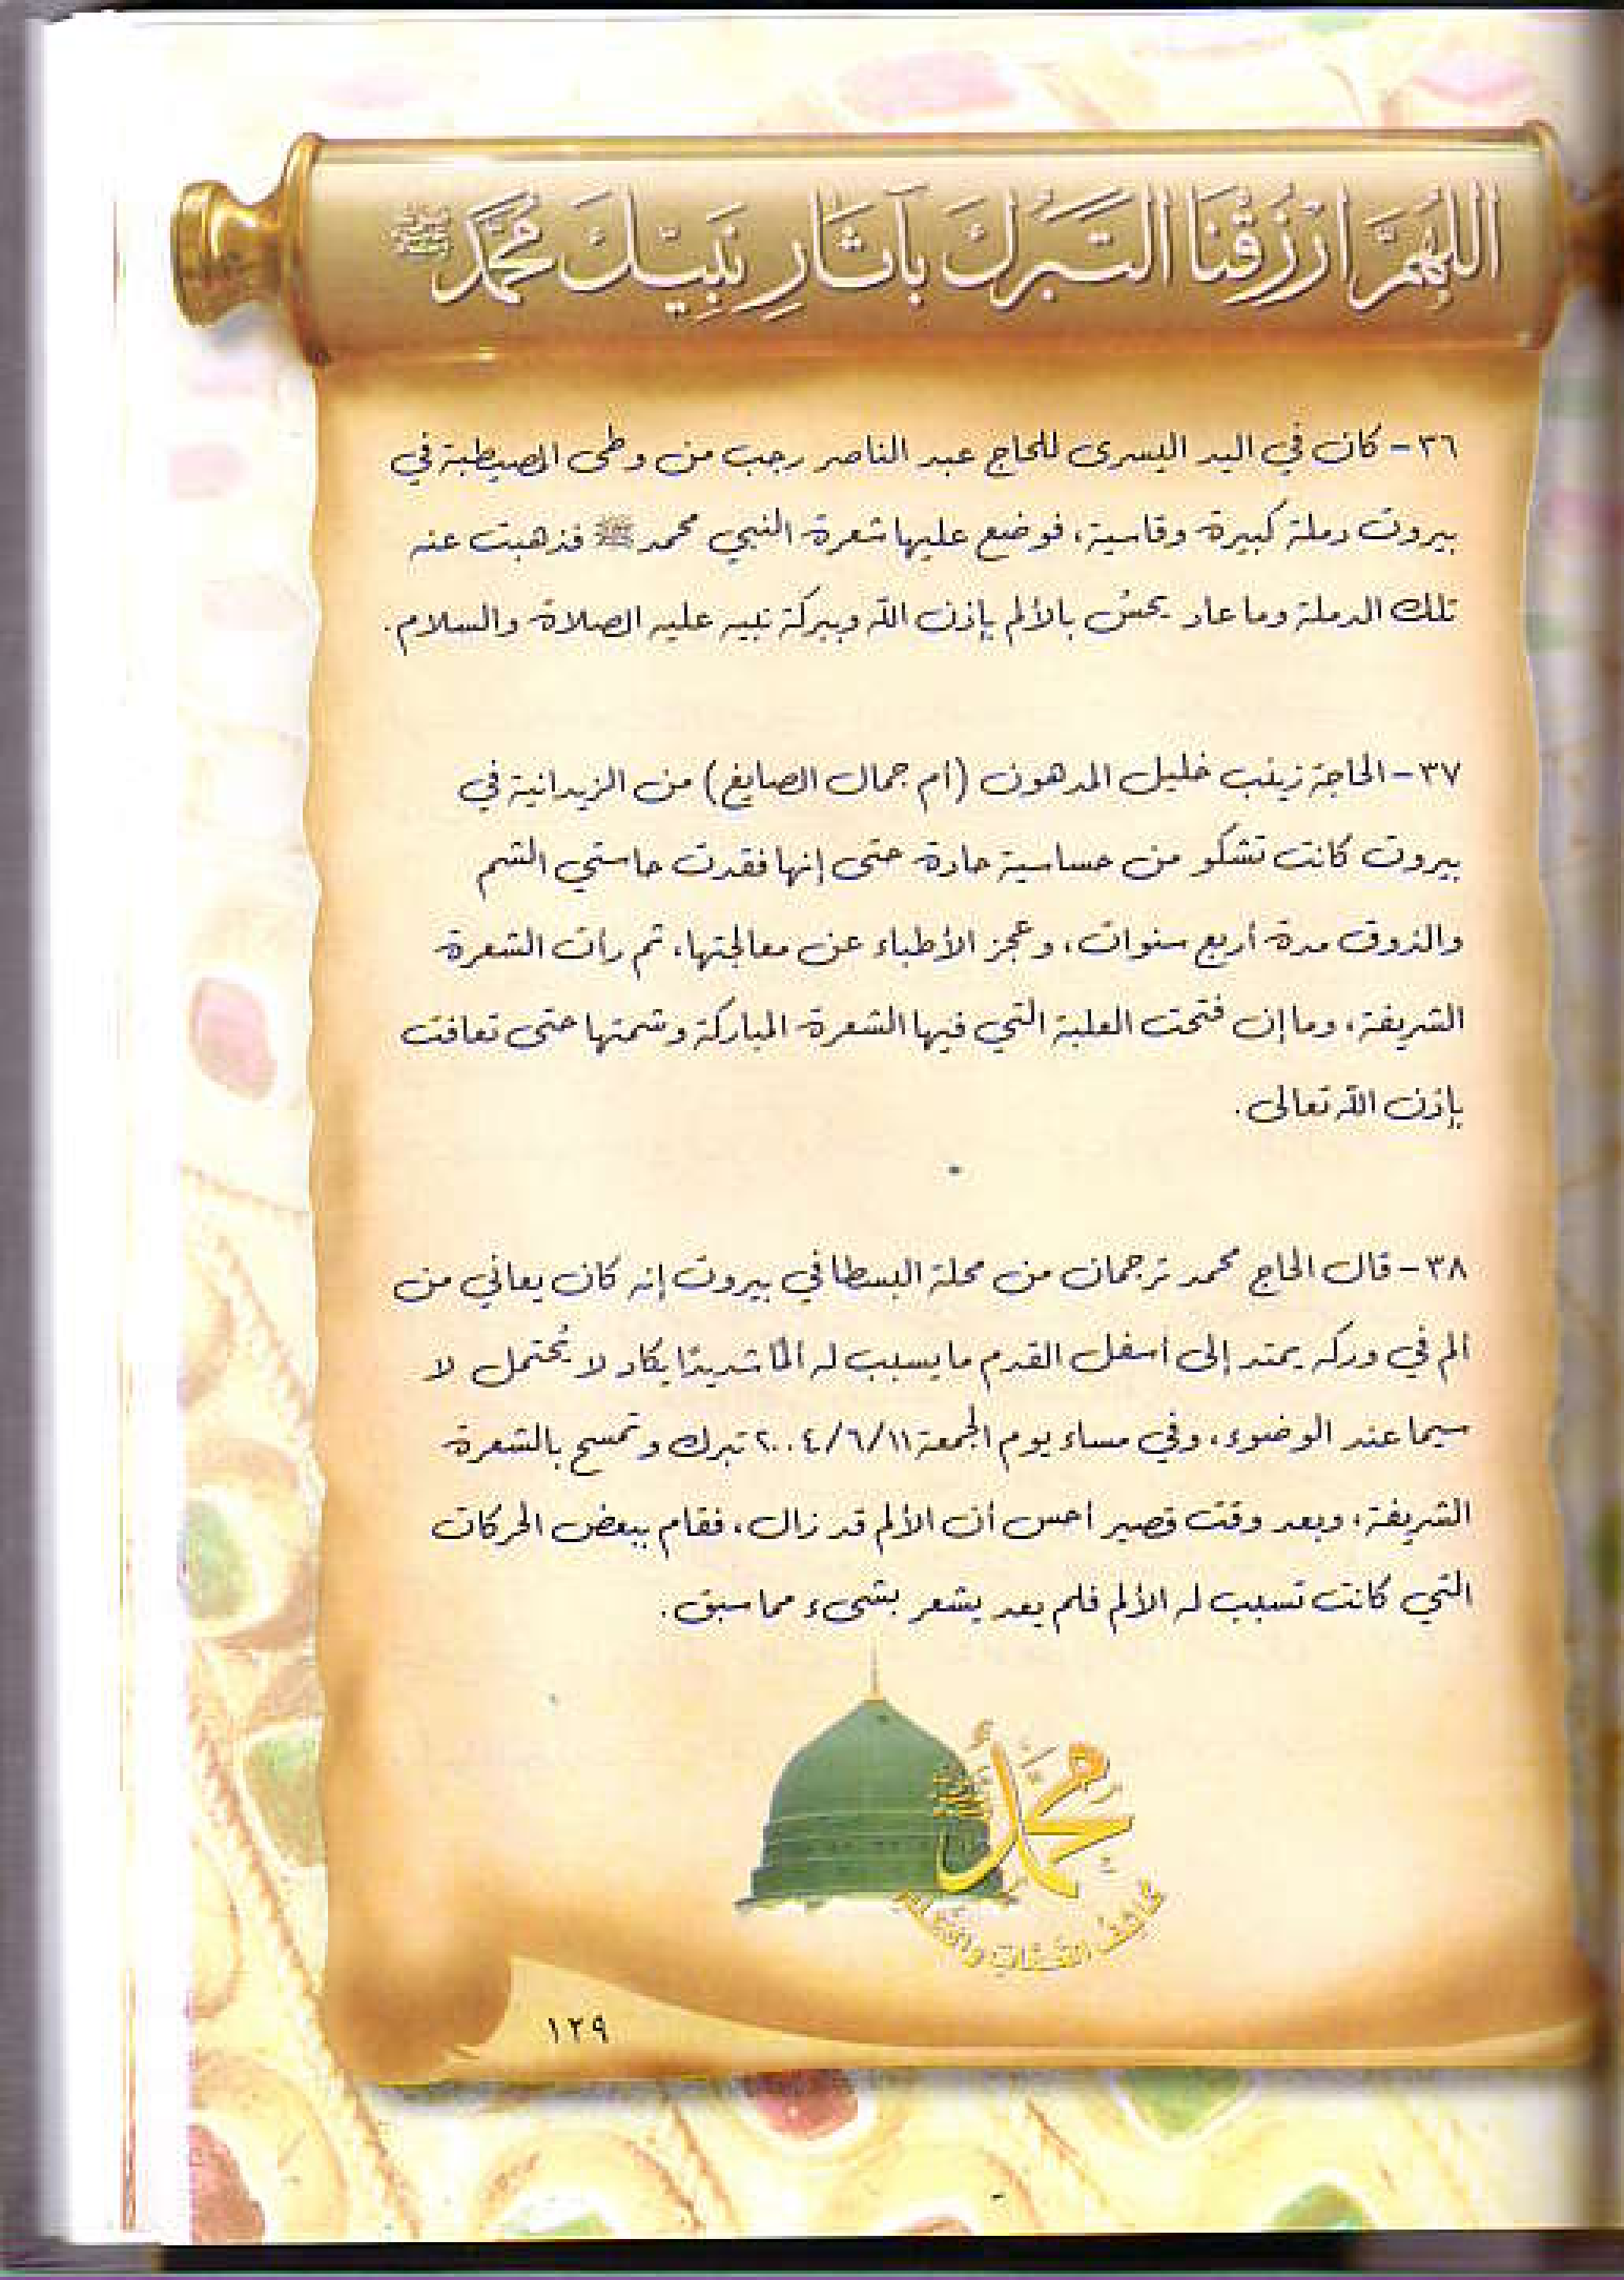 اللهُمَّ ارْزُقْنَا التَّبَرُّكَ بِآثَارِ نَبِيِّكَ مُحَمَّدٍ ﷺ
٣٦- كان في اليد اليسرى للحاج عبد الناصر رجب من وطى المصيطبة في
بيروت دملة كبيرة وقاسية، فوضع عليها شعرة النبي محمد ﷺ فذهبت عنه
تلك الدملة وما عاد يحسّ بالألم بإذن الله وببركة نبيه عليه الصلاة والسلام.
٣٧- الحاجة زينب خليل المدهون (أم جمال الصايغ) من الزيدانية في
بيروت كانت تشكو من حساسية حادة حتى إنها فقدت حاستي الشم
والذوق مدة أربع سنوات، وعجز الأطباء عن معالجتها، ثم رأت الشعرة
الشريفة، وما إن فتحت العلبة التي فيها الشعرة المباركة وشمتها حتى تعافت
بإذن الله تعالى.
٣٨- قال الحاج محمد ترجمان من محلة البسطا في بيروت إنه كان يعاني من
ألم في وركه يمتد إلى أسفل القدم ما يسبب له ألمًا شديدًا يكاد لا يُحتمل لا
سيما عند الوضوء، وفي مساء يوم الجمعة ٢٠٠٤/٦/١١ تبرك وتمسح بالشعرة
الشريفة، وبعد وقت قصير أحس أن الألم قد زال، فقام ببعض الحركات
التي كانت تسبب له الألم فلم يعد يشعر بشىء مما سبق.
مُحَمَّدٌ
١٢٩